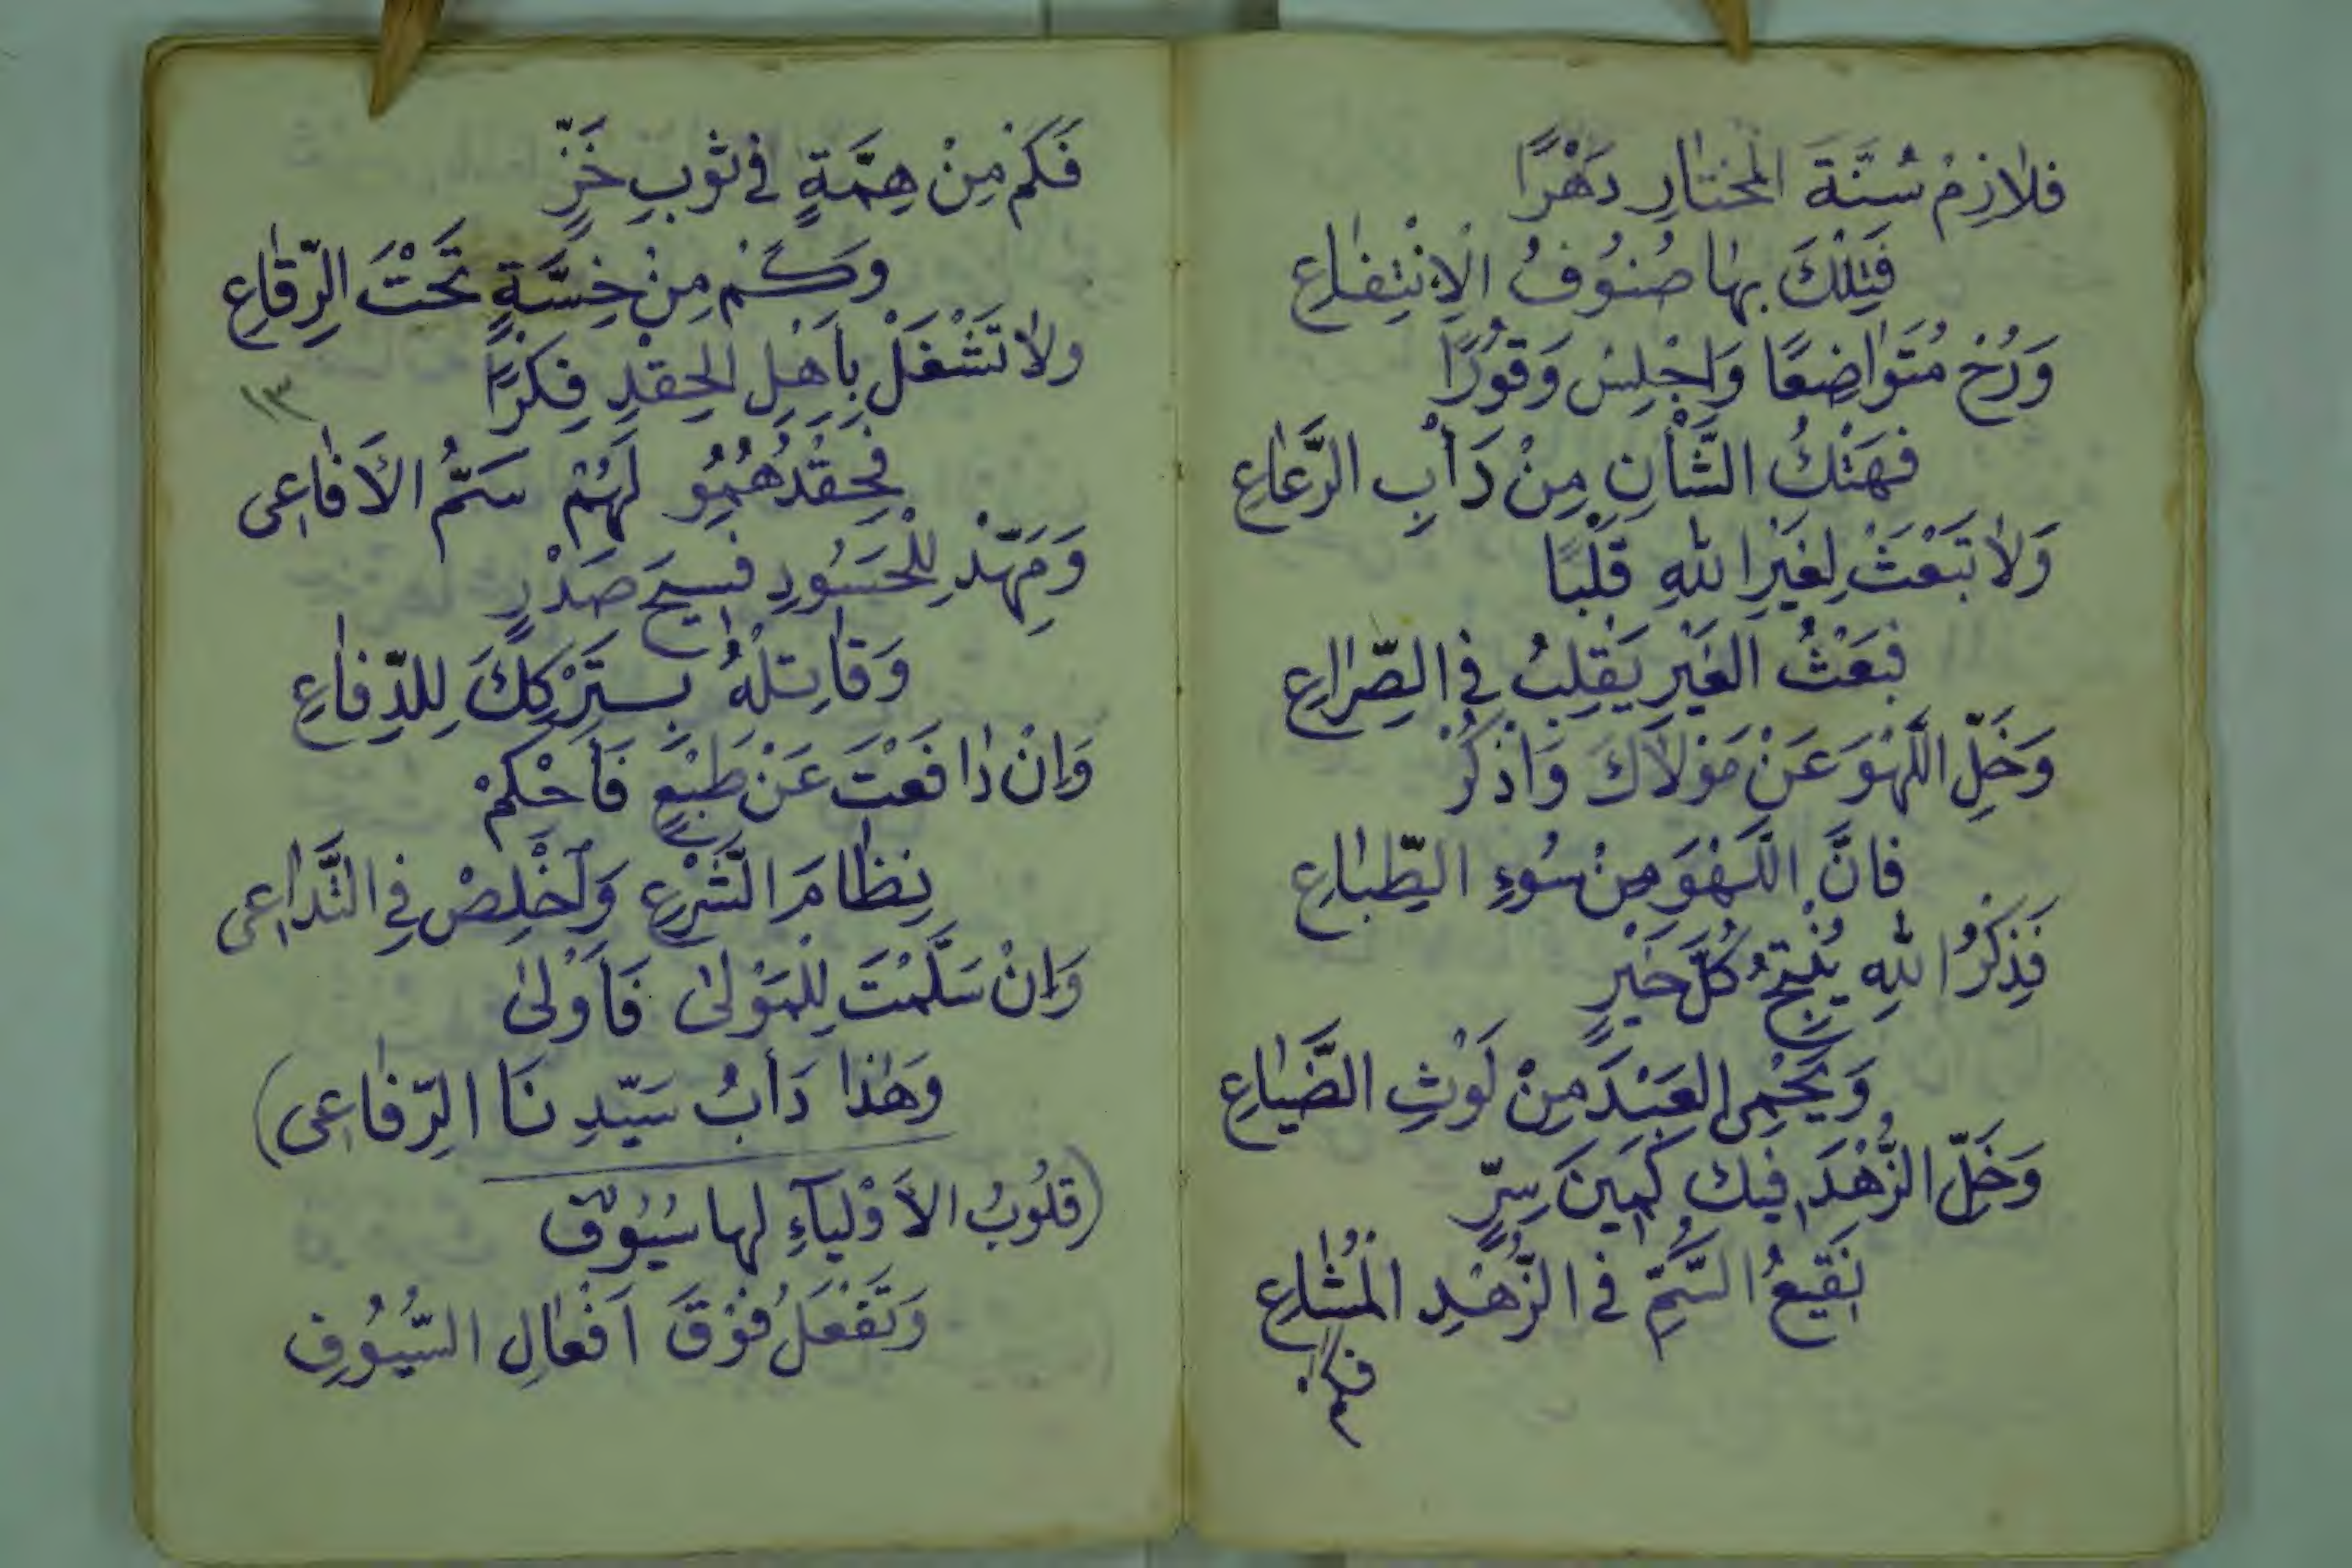 فلازِمْ سُنَّةَ المُختارِ دَهْرًا
فَتِلْكَ بها صُنوُفُ الاِنْتِفاعِ
وَرُحْ مُتَواضِعًا وَاجْلِسْ وَقوُرًا
فهَتْكُ الشَّأنِ مِنْ دَأْبِ الرَّعاعِ
وَلا تَبْعَثْ لِغَيْرِ اللهِ قَلْبًا
فبَعْثُ الغَيْرِ يَقْلِبُ في الصِّراعِ
وَخَلِّ اللَّهْوَ عَنْ مَوْلاكَ وَاذْكُرْ
فانَّ اللَّهْوَ مِنْ سُوءِ الطِّباعِ
فَذِكْرُ اللهِ يُنْتِجُ كُلَّ خَيْرٍ
وَيَحْمِى العَبْدَ مِنْ لَوْثِ الضَّياعِ
وَخَلِّ الزُّهْدَ فيكَ كَمينَ سِرٍّ
نَقيعُ السُّمِّ في الزُّهْدِ المُشاعِ
فكم
فَكَمْ مِنْ هِمَّةٍ في ثوْبِ خَزٍّ
وَكَمْ مِنْ خِسَّةٍ تَحْتَ الرِّقاعِ
ولا تَشْغَلْ بِأهْلِ الحِقْدِ فِكرًا
١٣
فحِقْدُهُمُو لَهُمْ سَمُّ الأَفاعى
وَمَهِّدْ لِلْحَسُودِ فسيحَ صَدْرٍ
وَقاتِلْهُ بِتَرْكِكَ لِلدِّفاعِ
وَانْ دافَعْتَ عَنْ طَبْعٍ فَأَحْكِمْ
نِظامَ الشَّرْعِ وَأَخْلِصْ فِي التَّداعى
وَانْ سَلَّمْتَ لِلْمَوْلىٰ فَأَوْلىٰ
وَهٰذا دَأبُ سَيِّدِنَا الرِّفاعى)
(قلُوبُ الأَوْلِيآءِ لها سُيُوفٌ
وَتَفْعَلُ فوْقَ اَفْعالِ السُّيُوفِ